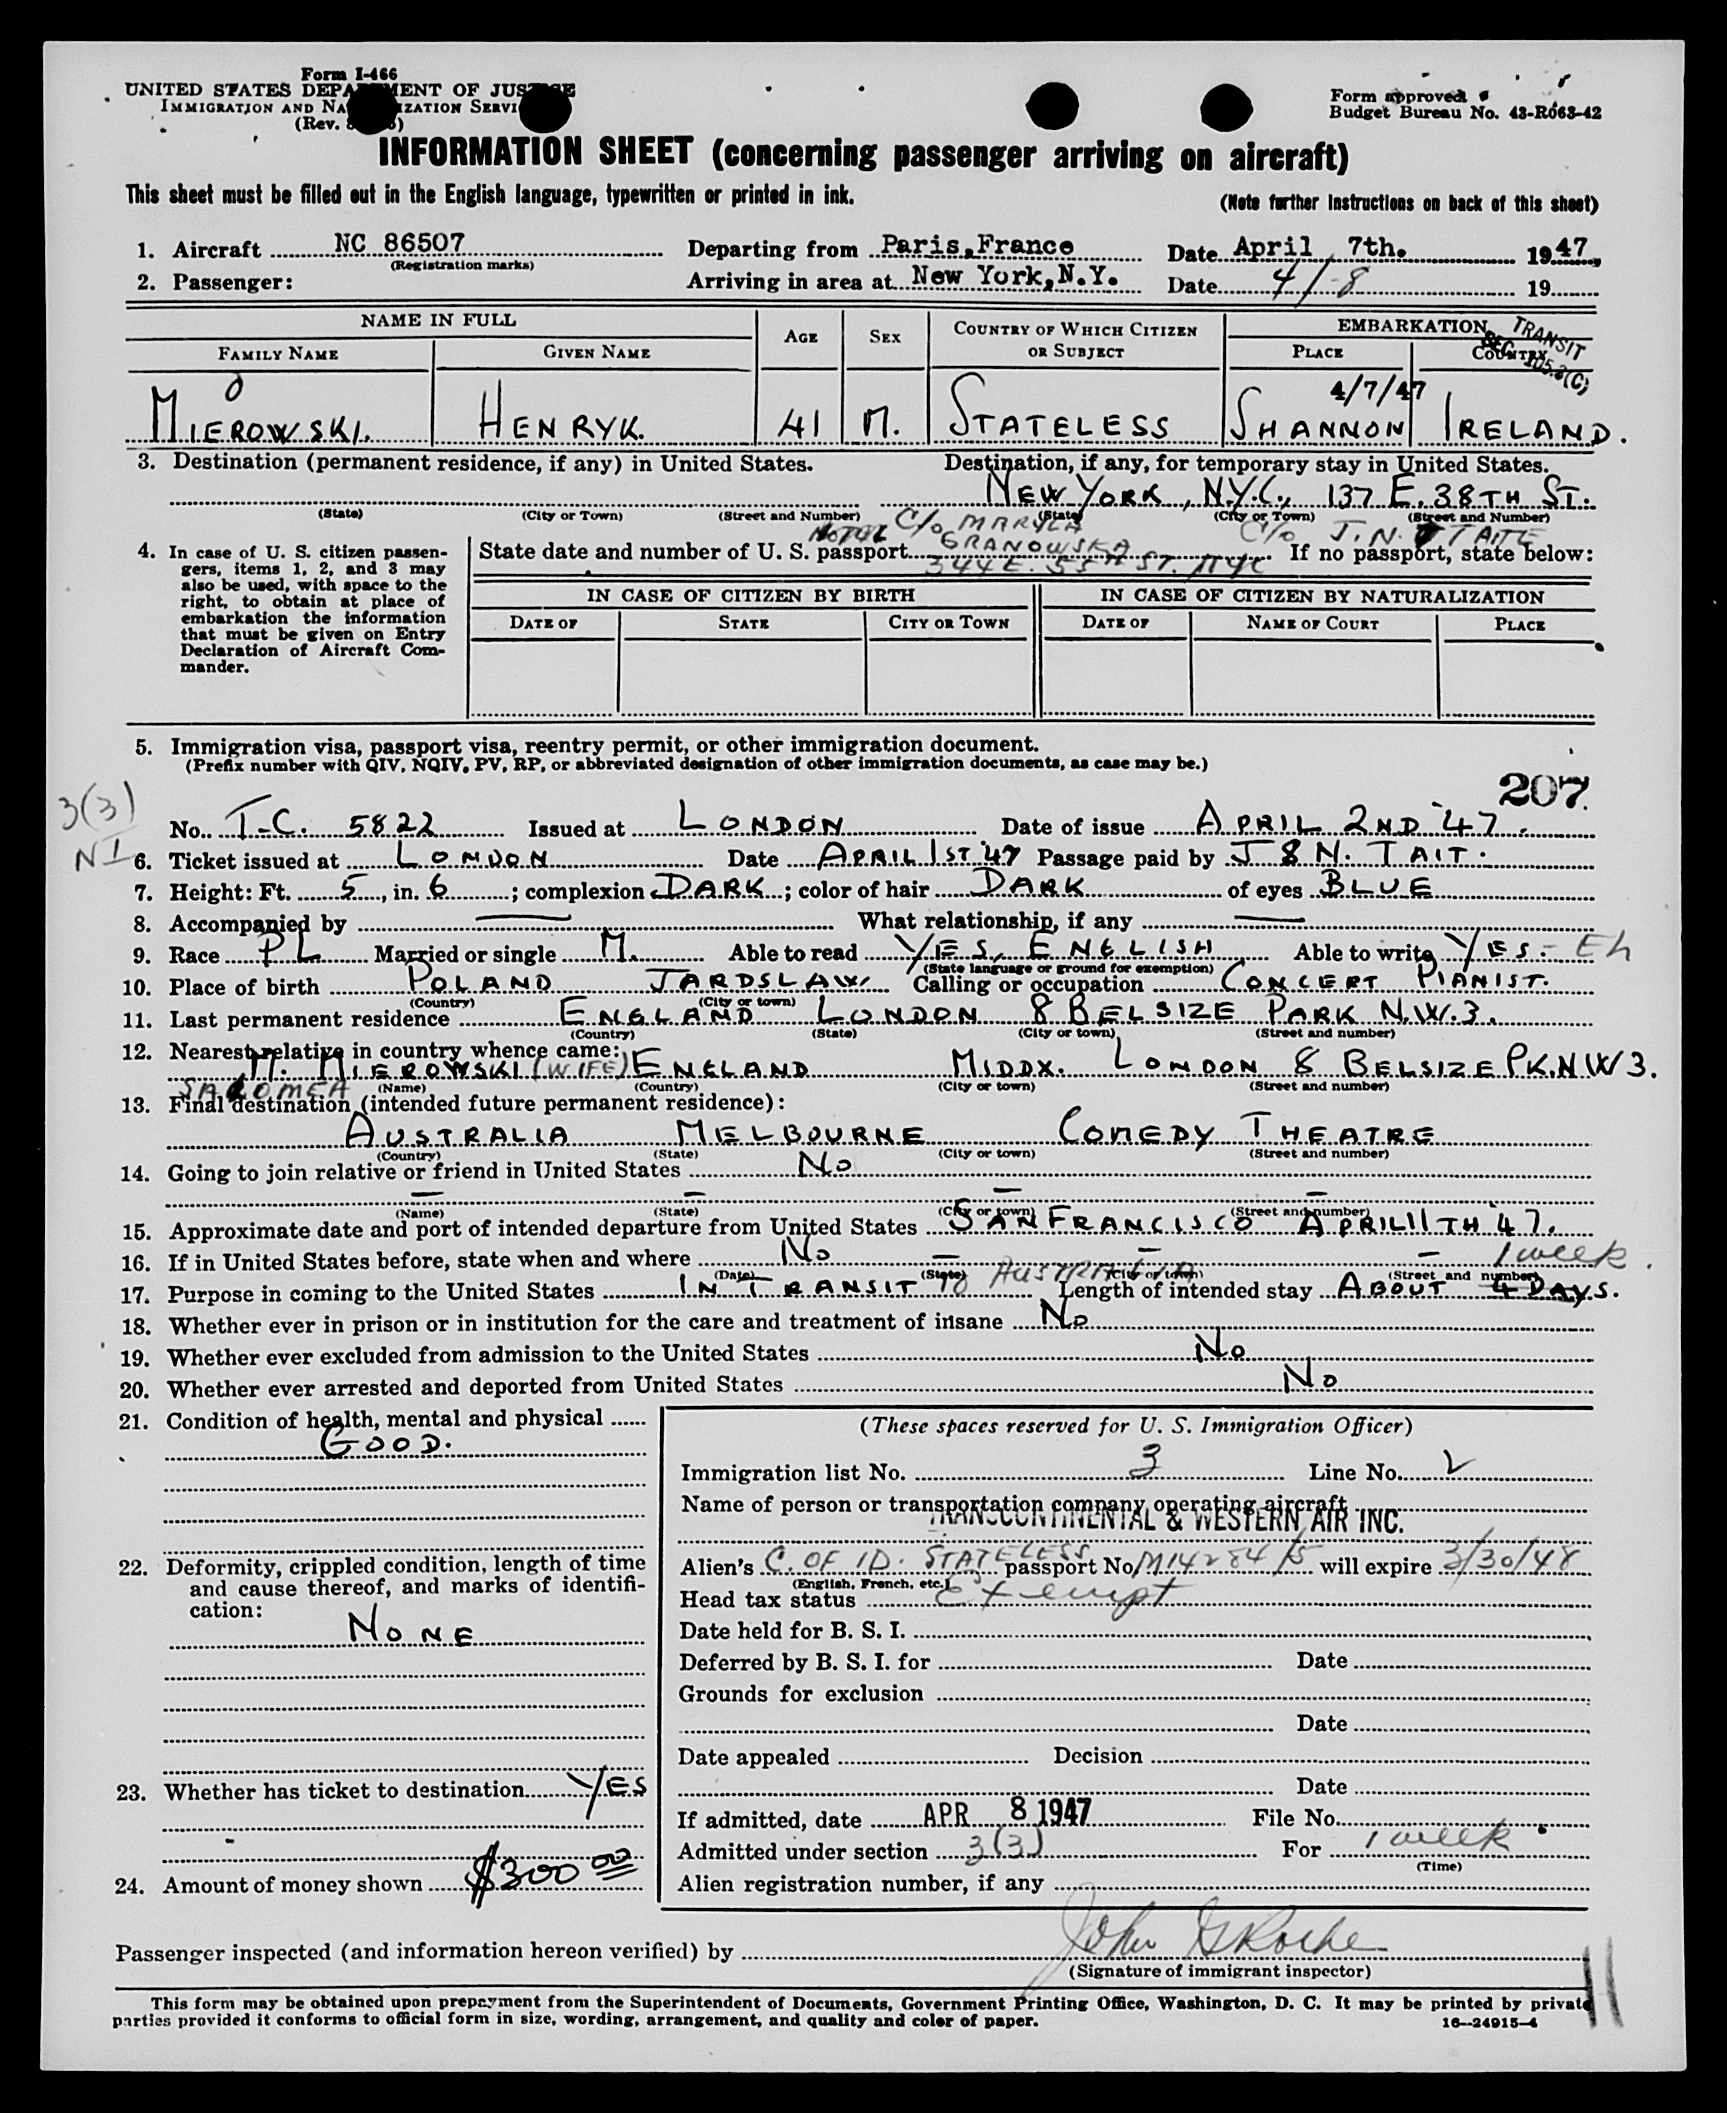 Form I-466
UNITED STATES DEPARTMENT OF JUSTICE
IMMIGRATION AND NATURALIZATION SERVICE
(Rev.
Form approved
Budget Bureau No. 43-R063-42
INFORMATION SHEET (concerning passenger arriving on aircraft)
This sheet must be filled out in the English language, typewritten or printed in ink.
(Note further instructions on back of this sheet)
1. Aircraft NC 86507 Departing from Paris,France Date April 7th. 1947,
(Registration marks)
2. Passenger: Arriving in area at New York,N.Y. Date 4/-8 19
NAME IN FULL AGE SEX COUNTRY OF WHICH CITIZEN OR SUBJECT EMBARKATION
TRANSIT
SEC. 105.3(C)
FAMILY NAME GIVEN NAME PLACE COUNTRY
4/7/47
MIEROWSKI. HENRYK. 41 M. STATELESS SHANNON IRELAND.
3. Destination (permanent residence, if any) in United States. Destination, if any, for temporary stay in United States.
NEW YORK, N.Y.C., 137 E. 38TH ST.
(State) (City or Town) (Street and Number) (State) (City or Town) (Street and Number)
HOTEL C/o MARYLA GRANOWSKA C/o J.N. TAITE
344 E. 55TH ST. NYC
4. In case of U. S. citizen passengers, items 1, 2, and 3 may also be used, with space to the right, to obtain at place of embarkation the information that must be given on Entry Declaration of Aircraft Commander.
State date and number of U. S. passport If no passport, state below:
IN CASE OF CITIZEN BY BIRTH IN CASE OF CITIZEN BY NATURALIZATION
DATE OF STATE CITY OR TOWN DATE OF NAME OF COURT PLACE
5. Immigration visa, passport visa, reentry permit, or other immigration document.
(Prefix number with QIV, NQIV, PV, RP, or abbreviated designation of other immigration documents, as case may be.)
207
3(3)
NI
No. T-C. 5822 Issued at LONDON Date of issue APRIL 2ND '47.
6. Ticket issued at LONDON Date APRIL 1ST '47 Passage paid by J & N. TAIT.
7. Height: Ft. 5, in. 6; complexion DARK; color of hair DARK of eyes BLUE
8. Accompanied by — What relationship, if any —
9. Race PL Married or single M. Able to read YES, ENGLISH Able to write YES - Eh
(State language or ground for exemption)
10. Place of birth POLAND JARDSLAW Calling or occupation CONCERT PIANIST.
(Country) (City or town)
11. Last permanent residence ENGLAND LONDON 8 BELSIZE PARK N.W.3.
(Country) (State) (City or town) (Street and number)
12. Nearest relative in country whence came:
M. MIEROWSKI (WIFE) ENGLAND MIDDX. LONDON 8 BELSIZE PK.NW3.
SALOMEA (Name) (Country) (City or town) (Street and number)
13. Final destination (intended future permanent residence):
AUSTRALIA MELBOURNE COMEDY THEATRE
(Country) (State) (City or town) (Street and number)
14. Going to join relative or friend in United States NO
— — — —
(Name) (State) (City or town) (Street and number)
15. Approximate date and port of intended departure from United States SAN FRANCISCO APRIL 11TH '47.
16. If in United States before, state when and where NO — — — 1 week.
(Date) (State) (City or town) (Street and number)
17. Purpose in coming to the United States IN TRANSIT TO AUSTRALIA Length of intended stay ABOUT 4 DAYS.
18. Whether ever in prison or in institution for the care and treatment of insane NO
19. Whether ever excluded from admission to the United States NO
20. Whether ever arrested and deported from United States NO
21. Condition of health, mental and physical
GOOD.
22. Deformity, crippled condition, length of time and cause thereof, and marks of identification:
NONE
23. Whether has ticket to destination YES
24. Amount of money shown $300 00
(These spaces reserved for U. S. Immigration Officer)
Immigration list No. 3 Line No. 2
Name of person or transportation company operating aircraft
TRANSCONTINENTAL & WESTERN AIR INC.
Alien's C. OF ID. STATELESS passport No. M14284/5 will expire 3/30/48
(English, French, etc.)
Head tax status Exempt
Date held for B. S. I.
Deferred by B. S. I. for Date
Grounds for exclusion
Date
Date appealed Decision
Date
If admitted, date APR 8 1947 File No.
Admitted under section 3(3) For 1 week
(Time)
Alien registration number, if any
Passenger inspected (and information hereon verified) by John G Roche
(Signature of immigrant inspector)
This form may be obtained upon prepayment from the Superintendent of Documents, Government Printing Office, Washington, D. C. It may be printed by private
parties provided it conforms to official form in size, wording, arrangement, and quality and color of paper.
16—24915-4